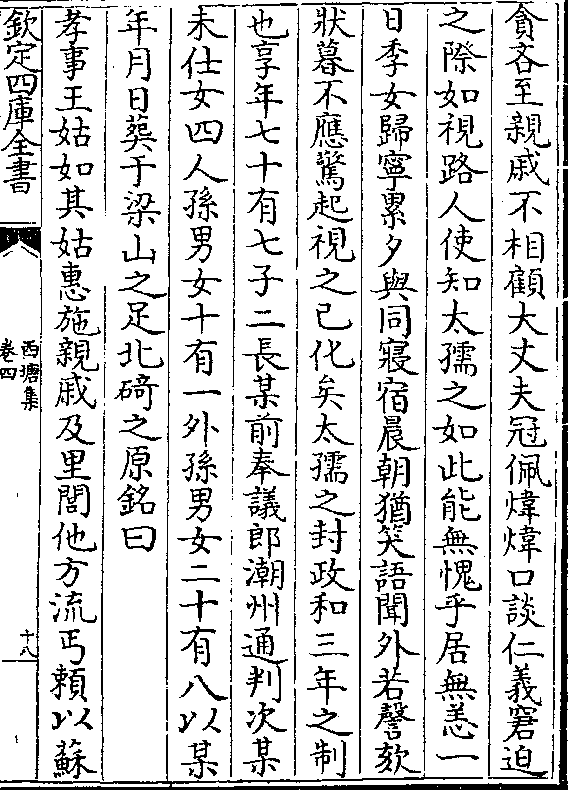 貪吝至親戚不相顧大丈夫冠佩煒煒口談仁義窘迫
之際如視路人使知太孺之如此能無愧乎居無恙一
日季女歸寧累夕與同寢宿晨朝猶笑語聞外若謦欬
狀暮不應驚起視之已化矣太孺之封政和三年之制
也享年七十有七子二長某前奉議郎潮州通判次某
未仕女四人孫男女十有一外孫男女二十有八以某
年月日葬于梁山之足北碕之原銘曰
孝事王姑如其姑惠施親戚及里閭他方流丐頼以蘇
欽定四庫全書
西塘集
卷四
十八